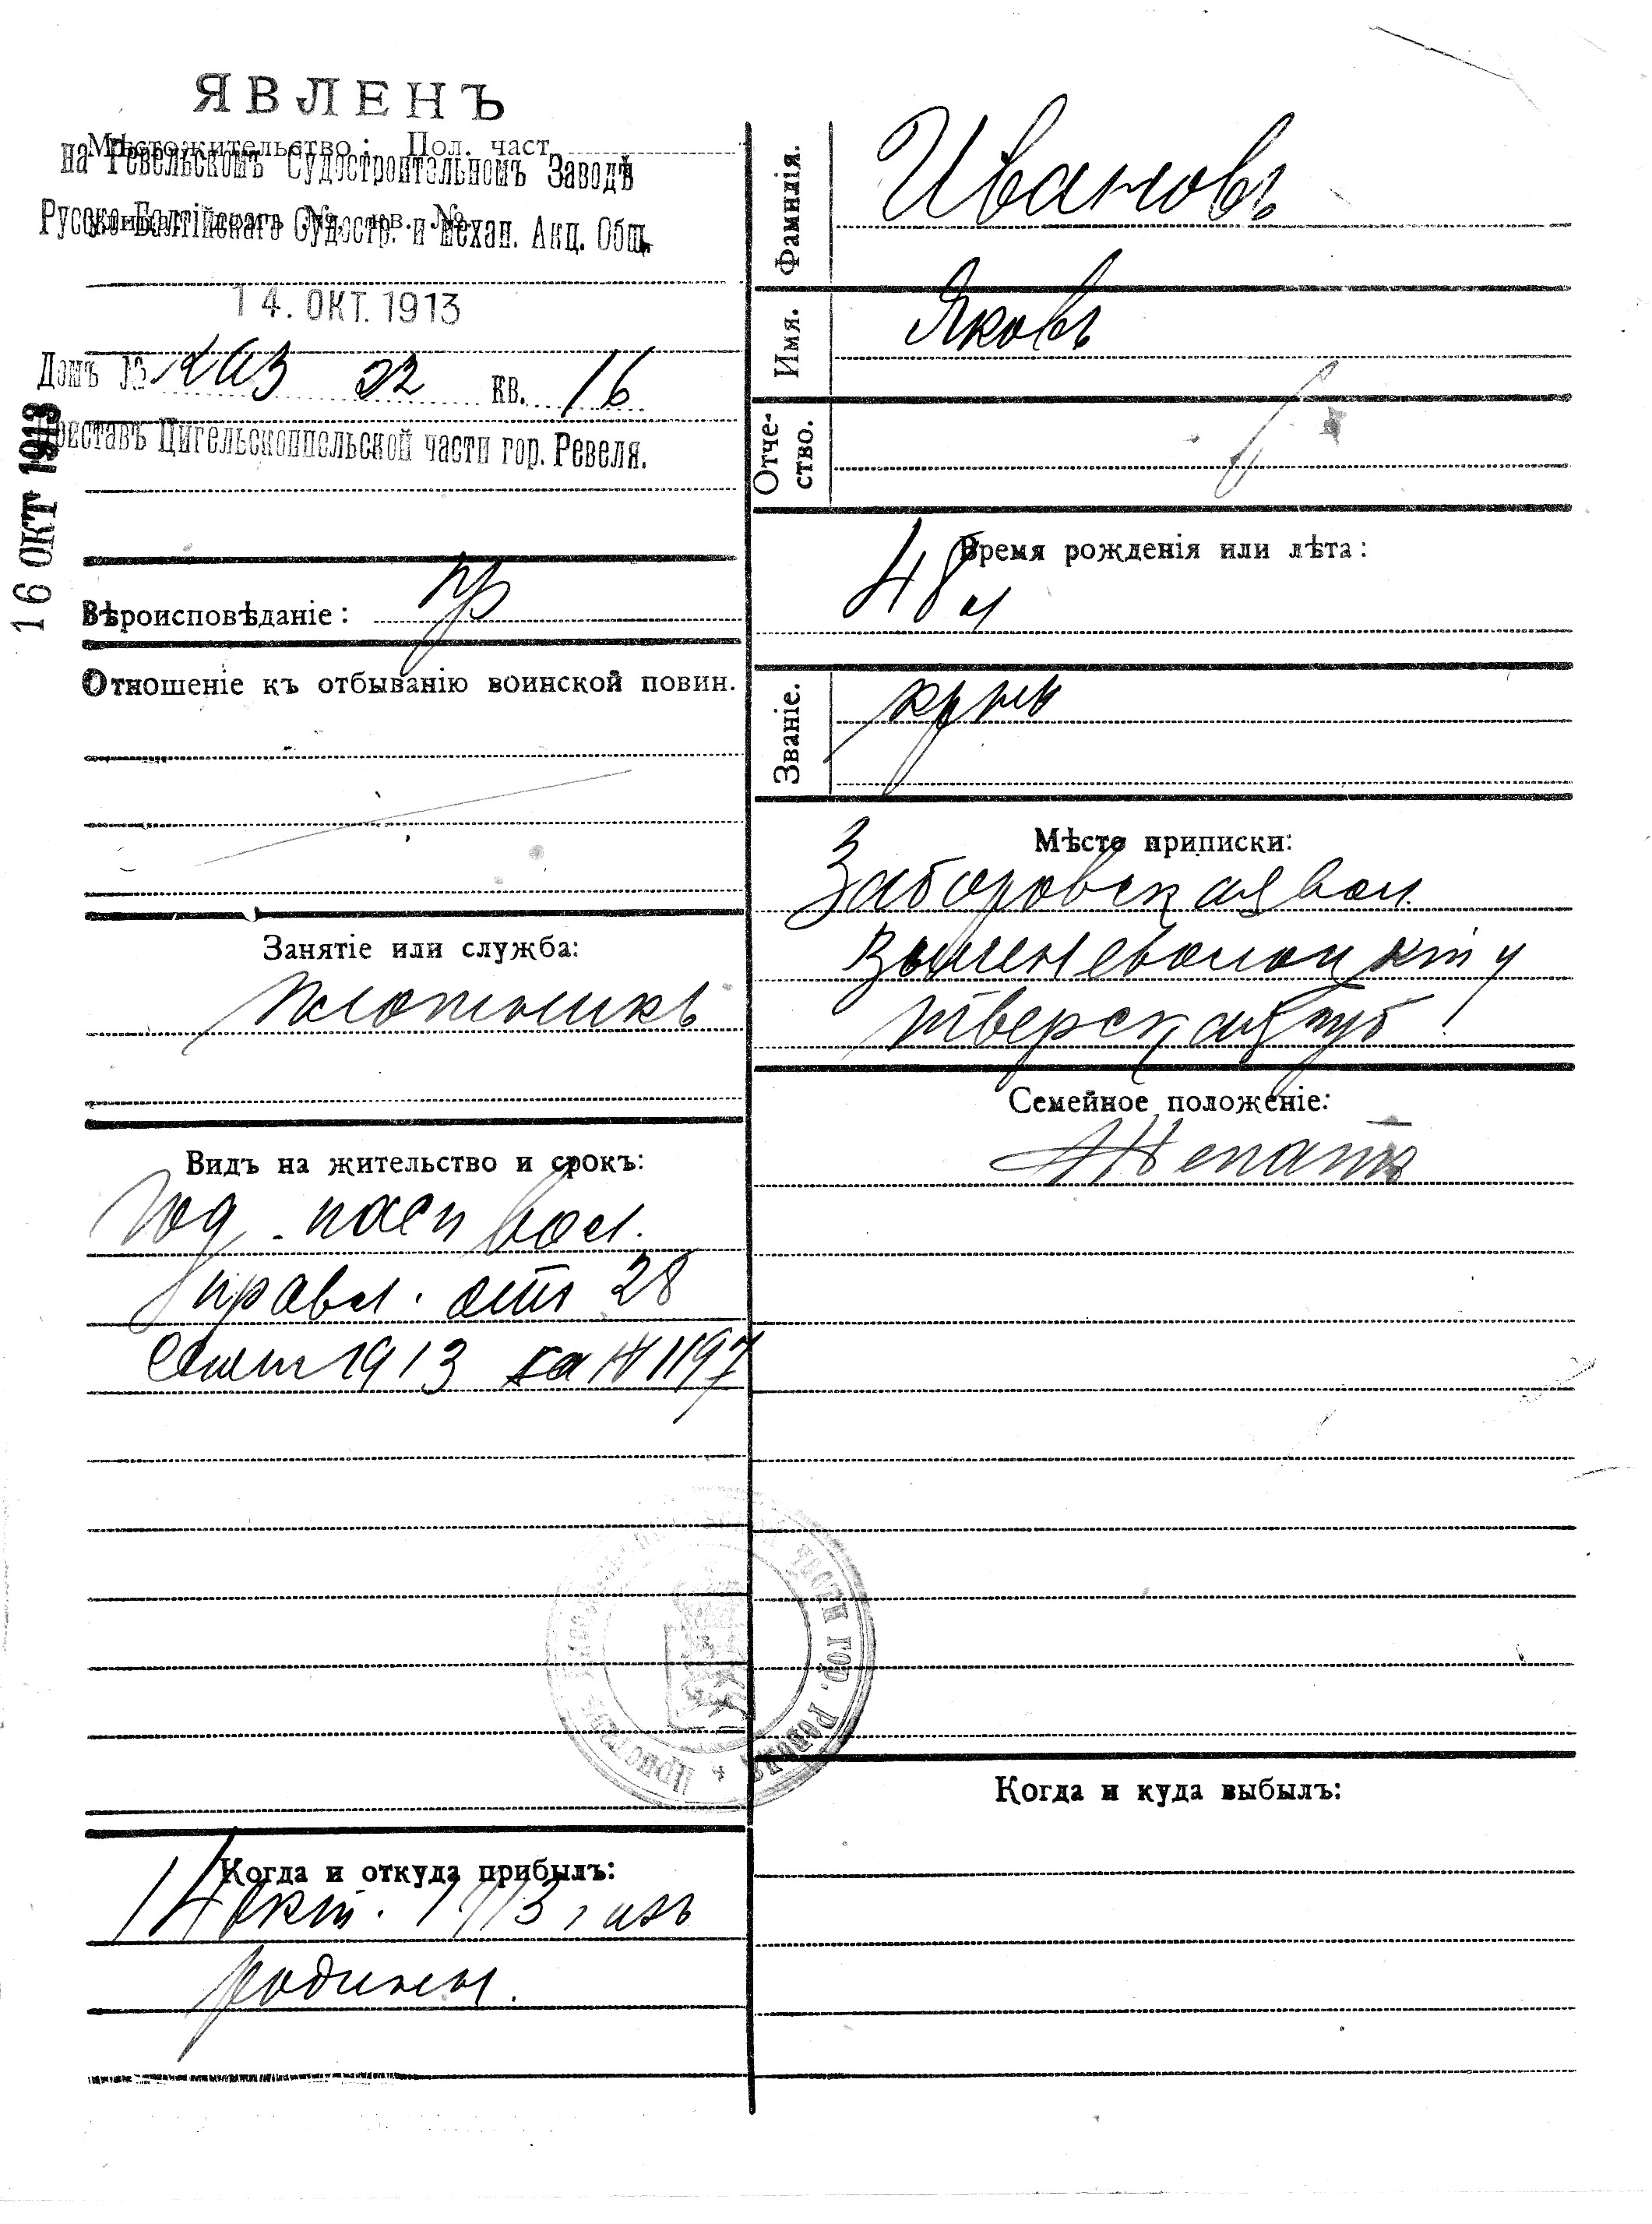 ЯВЛЕНЪ
Мѣстожительство: Пол. част.
на Ревельскомъ Судостроительномъ Заводѣ
Русско-Балтійскаго Судостр. и Механ. Акц. Общ.
14. ОКТ. 1913
Домъ № каз 22 кв. 16
Приставъ Цигельскоппельской части гор. Ревеля.
16 ОКТ 1913
Вѣроисповѣданіе: пр
Отношеніе къ отбыванію воинской повин.
Занятіе или служба:
плотникъ
Видъ на жительство и срокъ:
Год. пасп вол.
правл. отъ 28
сент 1913 за № 1197
Когда и откуда прибылъ:
14 окт. 1913 г изъ
родины.
Фамилія. Ивановъ
Имя. Яковъ
Отчество.
Время рожденія или лѣта:
48 л
Званіе. крнъ
Мѣсто приписки:
Заборовская вол.
Вышневолоцкій у
Тверская губ
Семейное положеніе:
Женатъ
части гор. Ревеля * Приставъ
Когда и куда выбылъ: